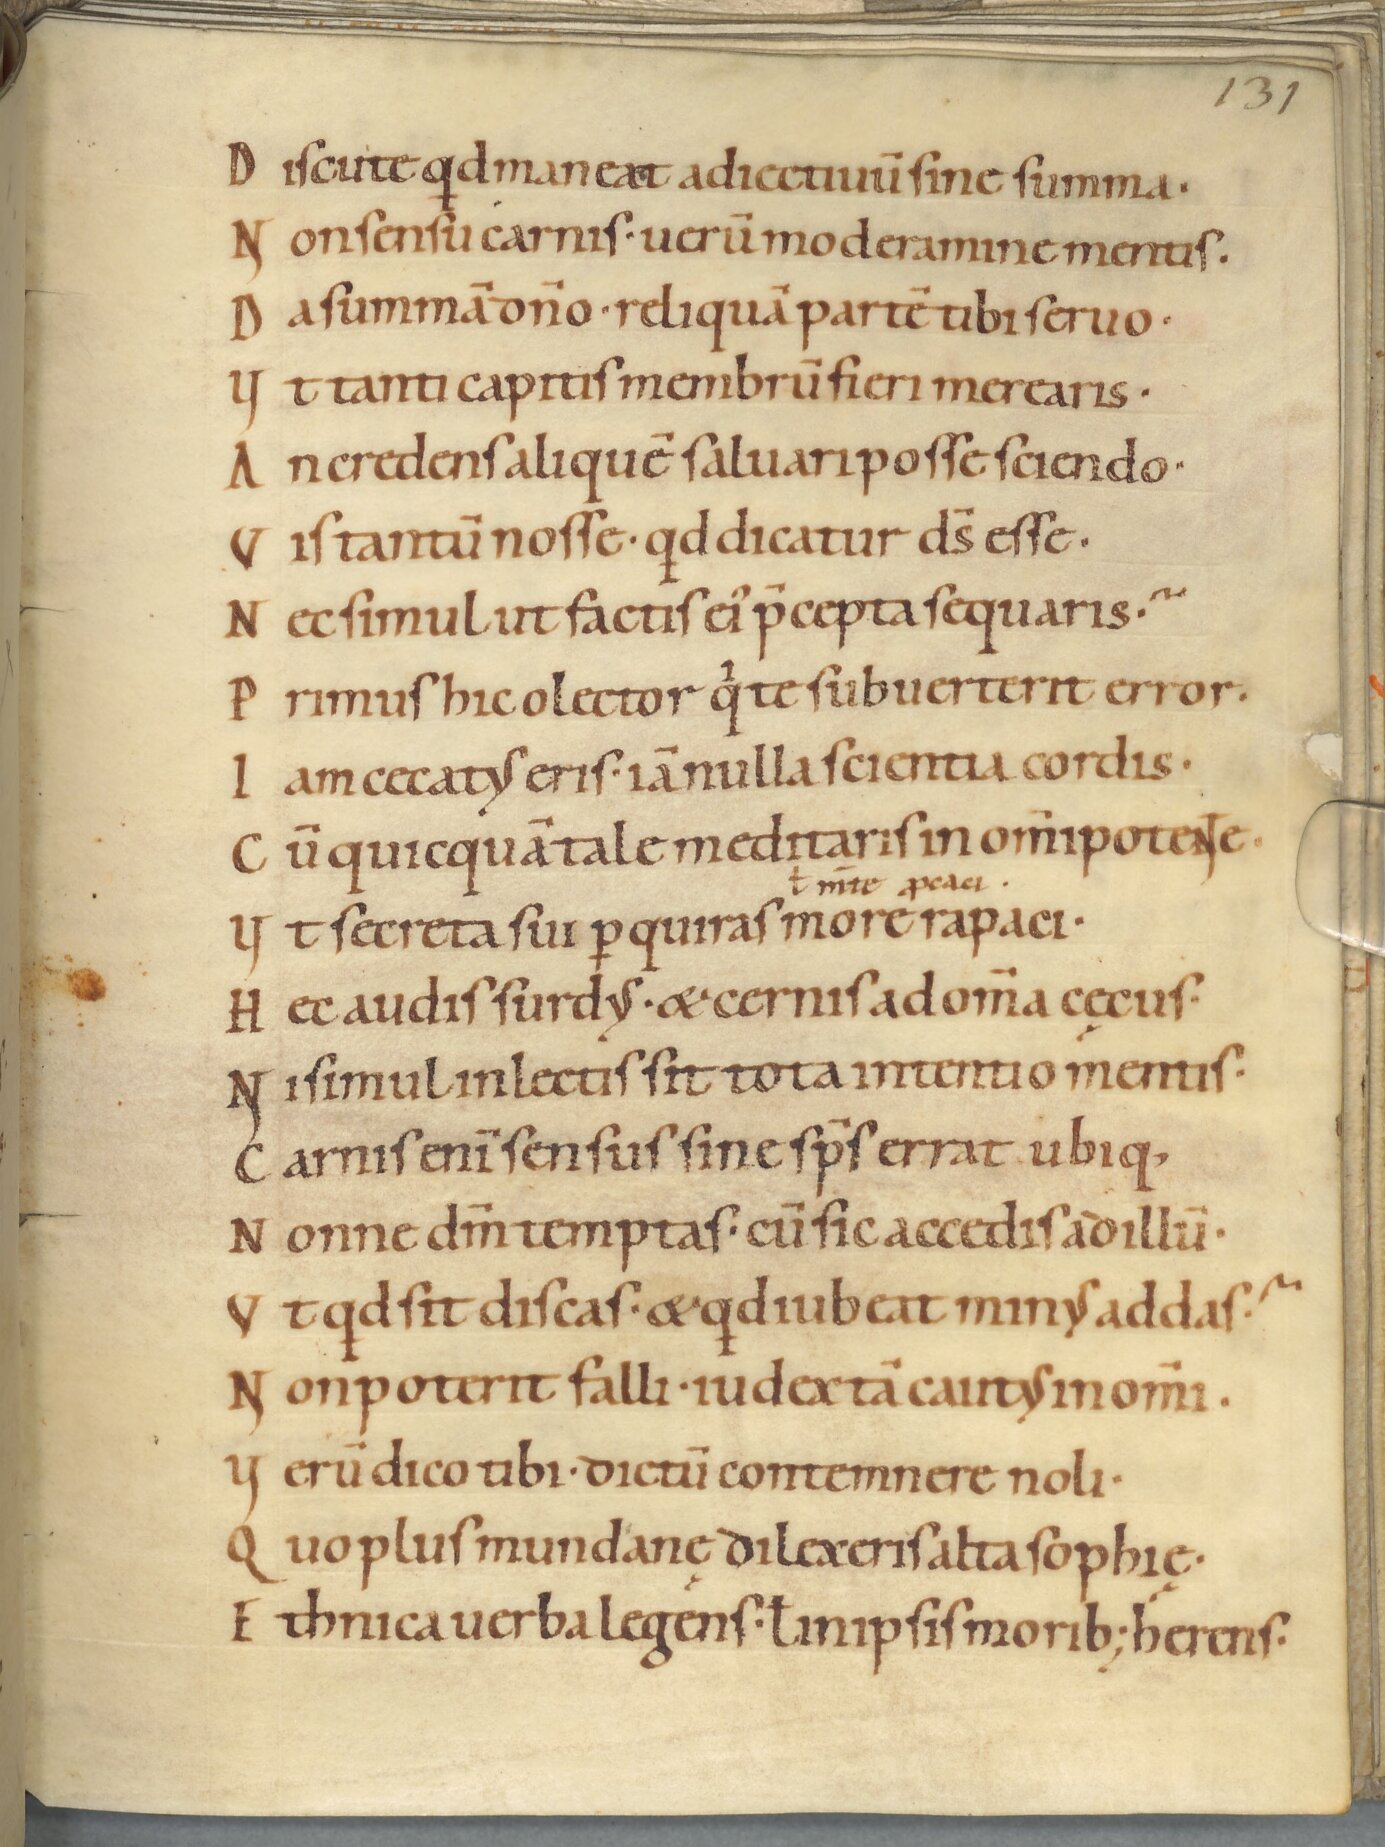 131
Discute qđ maneat adiectiuū sine summa·
Non sensu carnis· uerū moderamine mentis·
Da summā dño· reliquā partē tibi seruo·
Vt tanti capitis membrū fieri merearis·
An credens aliquē saluari posse sciendo·
Vis tantū nosse· qđ dicatur d̄s esse·
Nec simul ut factis ei᾿ p̄cepta sequaris·~
Primus hic o lector q̇ te subuerterit error·
Iam cecatus eris· iā nulla scientia cordis·
Cū quicquā tale meditaris in om̄ipotente·
ł m̄te ꝓcaci·
Vt secreta sui ꝑquiras more rapaci·
Hec audis surdus· & cernis ad om̄a cęcus·
Ni simul in lectis sit tota intentio mentis·
Carnis enī sensus sine sp̄s errat ubiq,
Nonne dm̄ temptas· cū sic accedis ad illū·
Vt qđ sit discas· & qđ iubeat minus addas·~
Non poterit falli· iudex tā cautus in om̄i·
Verū dico tibi· dictū contemnere noli·
Quo plus mundanę dilexeris alta sophię·
Ethnica uerba legens· ł in ipsis morib; herens·